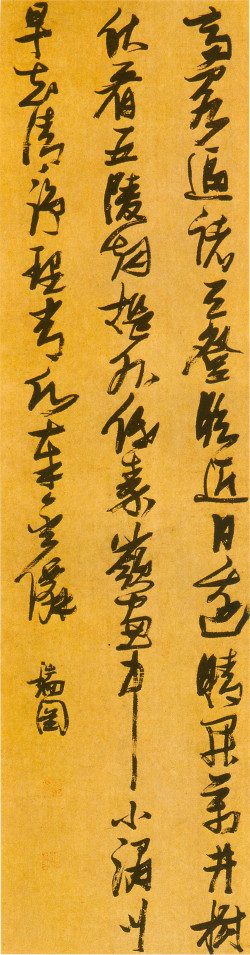 高閣逼諸天登臨近日邊晴開萬井樹
愁看五陵烟檻外低秦嶺窗中小渭川
早知清淨理常願奉金僊 瑞圖